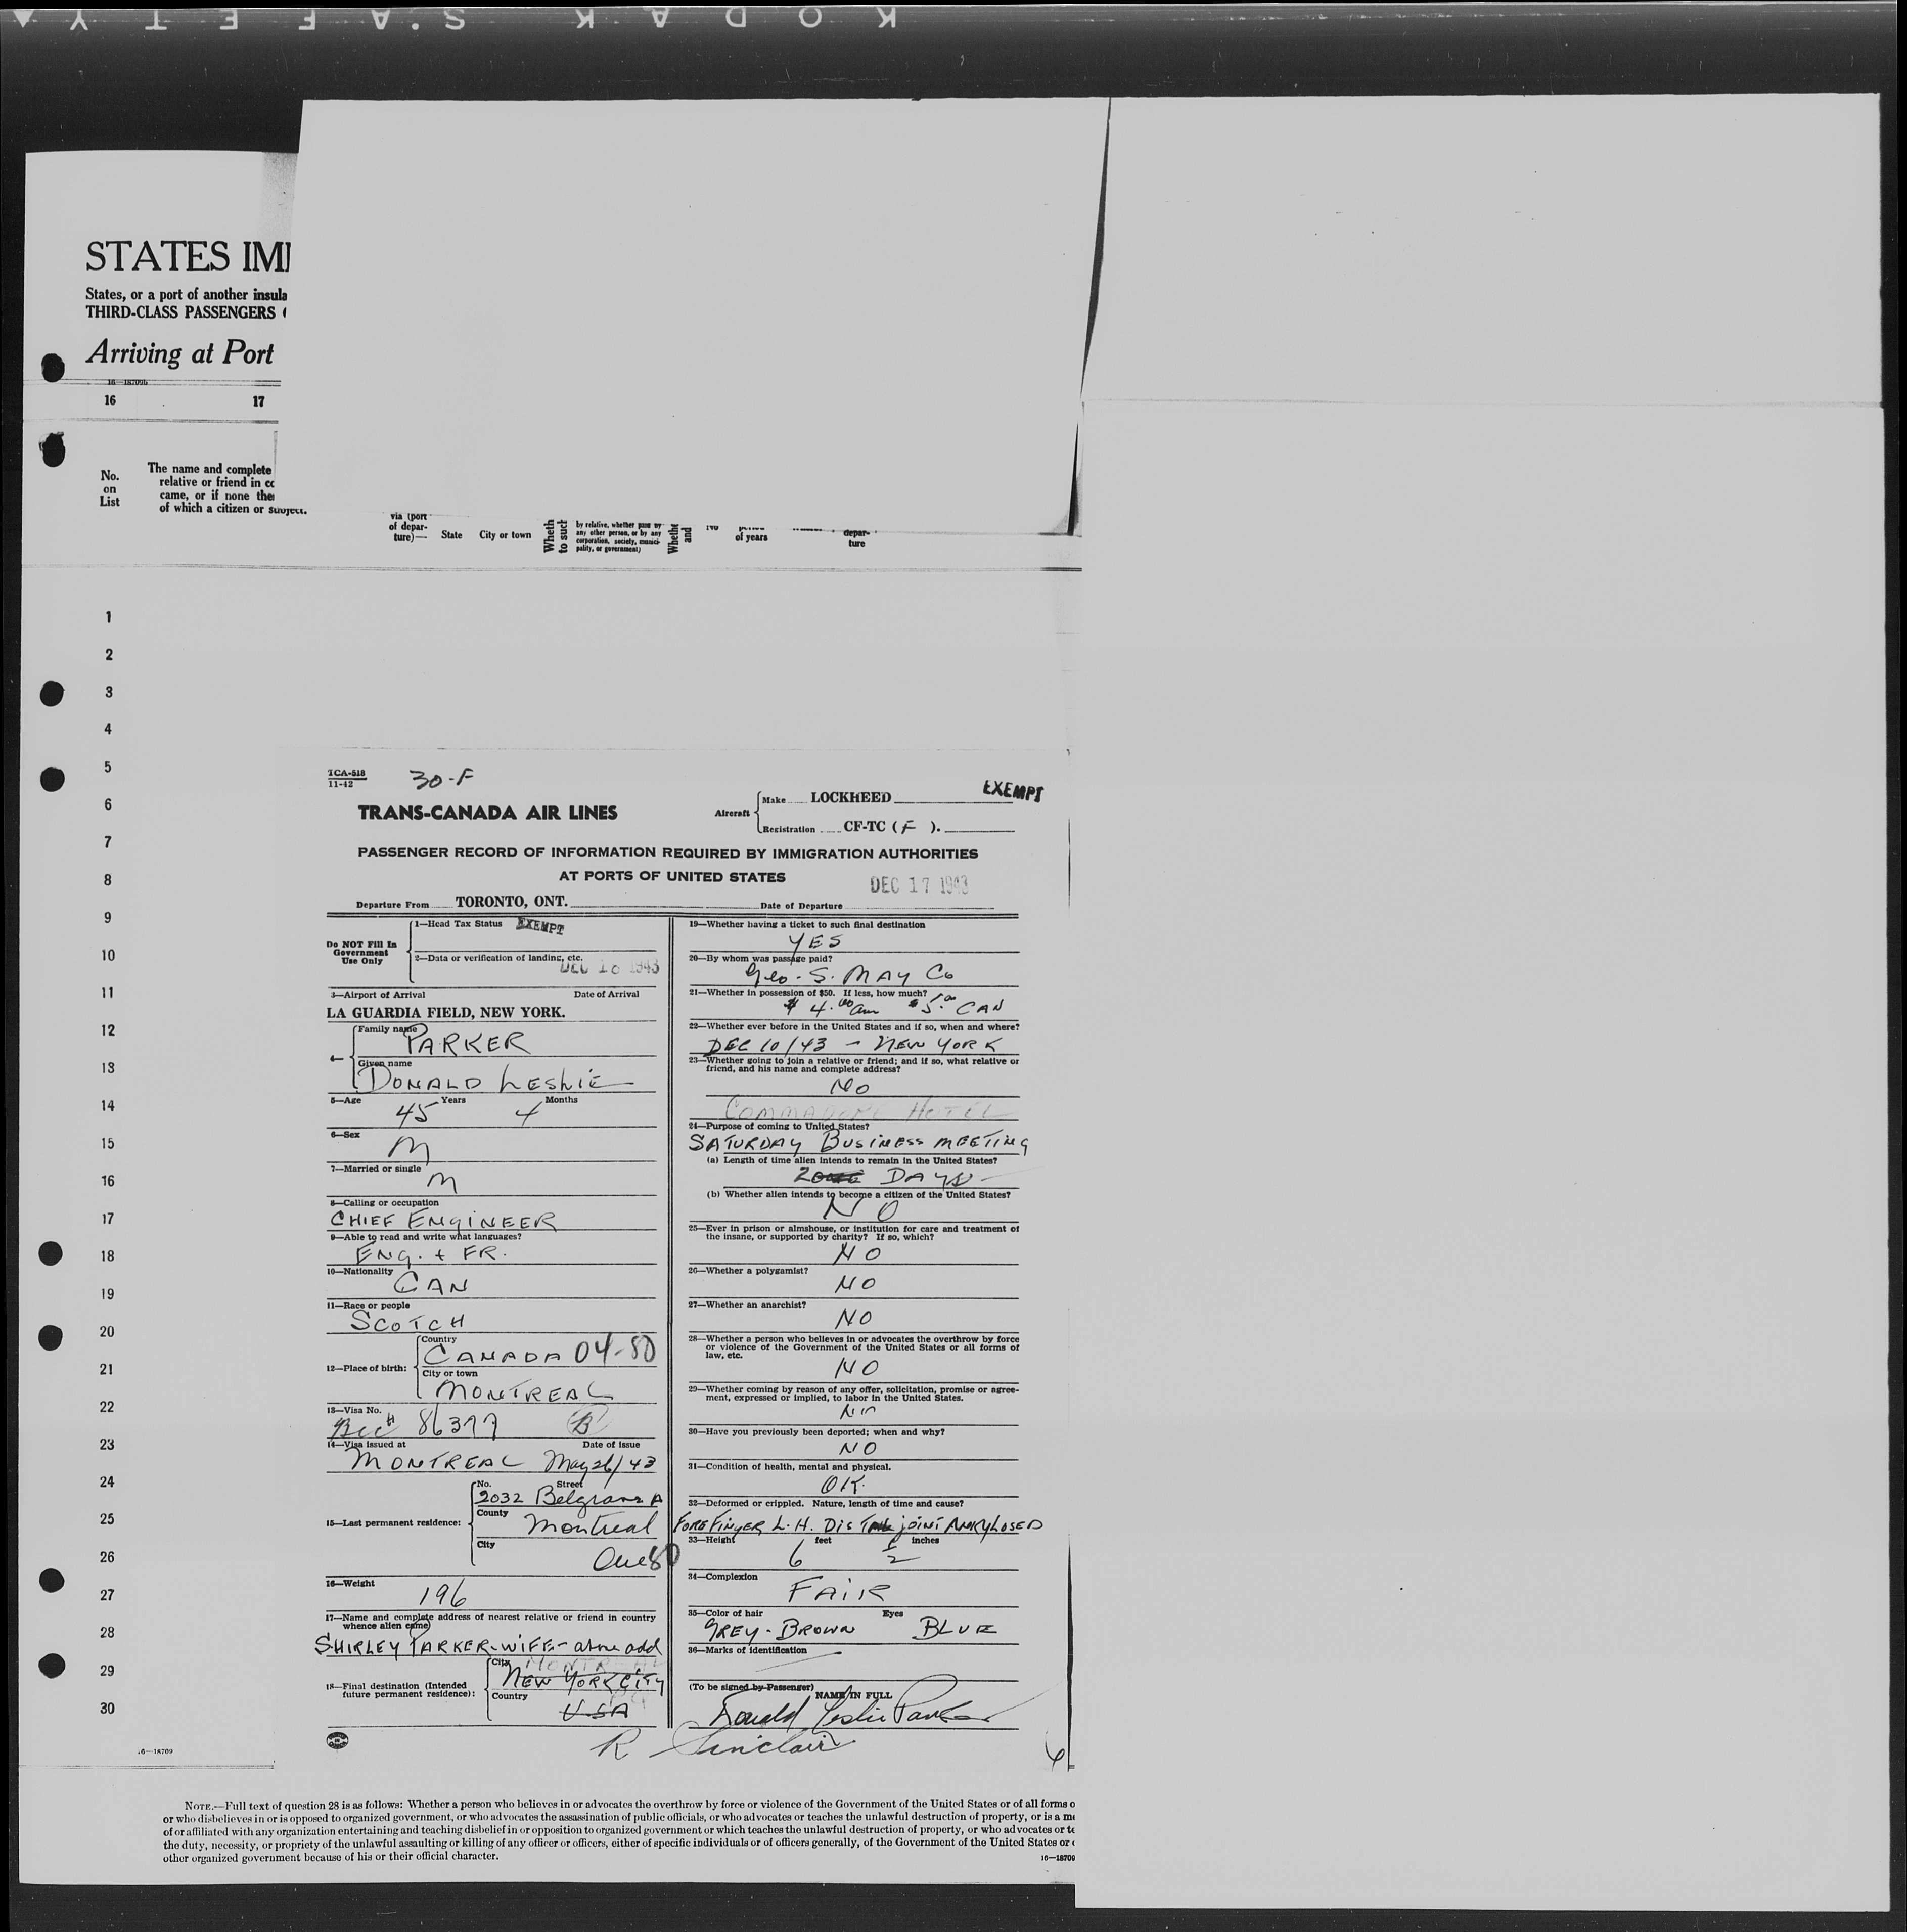 KODAK SAFETY
STATES IM
States, or a port of another insula
THIRD-CLASS PASSENGERS
Arriving at Port
16—18709b
16 17
No.
on
List
The name and complete
relative or friend in
came, or if none the
of which a citizen or subject.
via (port
of depar-
ture)—
State City or town
Wheth
to such
by relative, whether paid by
any other person, or by any
corporation, society, munici-
pality, or government)
Whethe
and
of years
depar-
ture
1
2
3
4
5
6
7
8
9
10
11
12
13
14
15
16
17
18
19
20
21
22
23
24
25
26
27
28
29
30
16—18709
TCA-518
11-42
30-F
EXEMPT
TRANS-CANADA AIR LINES
Aircraft
Make LOCKHEED
Registration CF-TC (F).
PASSENGER RECORD OF INFORMATION REQUIRED BY IMMIGRATION AUTHORITIES
AT PORTS OF UNITED STATES
DEC 17 1943
Departure From TORONTO, ONT. Date of Departure
Do NOT Fill In
Government
Use Only
1—Head Tax Status EXEMPT
2—Data or verification of landing, etc.
DEC 18 1943
3—Airport of Arrival Date of Arrival
LA GUARDIA FIELD, NEW YORK.
4— Family name
PARKER
Given name
DONALD LESLIE
5—Age 45 Years 4 Months
6—Sex
M
7—Married or single
M
8—Calling or occupation
CHIEF ENGINEER
9—Able to read and write what languages?
ENG. + FR.
10—Nationality
CAN
11—Race or people
SCOTCH
12—Place of birth:
Country
CANADA 04-80
City or town
MONTREAL
13—Visa No.
86377 B
14—Visa issued at Date of issue
MONTREAL May 26/43
15—Last permanent residence:
No. Street
2032 Belgrave A
County
Montreal
City
Que 80
16—Weight
196
17—Name and complete address of nearest relative or friend in country
whence alien came)
SHIRLEY PARKER-WIFE- above add
18—Final destination (Intended
future permanent residence):
City MONTREAL
NEW YORK CITY
Country
USA
19—Whether having a ticket to such final destination
YES
20—By whom was passage paid?
Geo. S. MAY Co
21—Whether in possession of $50. If less, how much?
$ 4.00 am $5.00 CAN
22—Whether ever before in the United States and if so, when and where?
DEC 10/43 - NEW YORK
23—Whether going to join a relative or friend; and if so, what relative or
friend, and his name and complete address?
NO
COMMADORE HOTEL
24—Purpose of coming to United States?
SATURDAY BUSINESS MEETING
(a) Length of time alien intends to remain in the United States?
2 DAYS
(b) Whether alien intends to become a citizen of the United States?
NO
25—Ever in prison or almshouse, or institution for care and treatment of
the insane, or supported by charity? If so, which?
NO
26—Whether a polygamist?
NO
27—Whether an anarchist?
NO
28—Whether a person who believes in or advocates the overthrow by force
or violence of the Government of the United States or all forms of
law, etc.
NO
29—Whether coming by reason of any offer, solicitation, promise or agree-
ment, expressed or implied, to labor in the United States.
NO
30—Have you previously been deported; when and why?
NO
31—Condition of health, mental and physical.
OK.
32—Deformed or crippled. Nature, length of time and cause?
FOREFINGER L.H. DISTAL JOINT ANKYLOSED
33—Height feet inches
6 1/2
34—Complexion
FAIR
35—Color of hair Eyes
GREY-BROWN BLUE
36—Marks of identification
(To be signed by Passenger)
NAME IN FULL
Donald Leslie Parker
R Sinclair
NOTE.—Full text of question 28 is as follows: Whether a person who believes in or advocates the overthrow by force or violence of the Government of the United States or of all forms o
or who disbelieves in or is opposed to organized government, or who advocates the assassination of public officials, or who advocates or teaches the unlawful destruction of property, or is a me
of or affiliated with any organization entertaining and teaching disbelief in or opposition to organized government or which teaches the unlawful destruction of property, or who advocates or te
the duty, necessity, or propriety of the unlawful assaulting or killing of any officer or officers, either of specific individuals or of officers generally, of the Government of the United States or
other organized government because of his or their official character.
16—18709